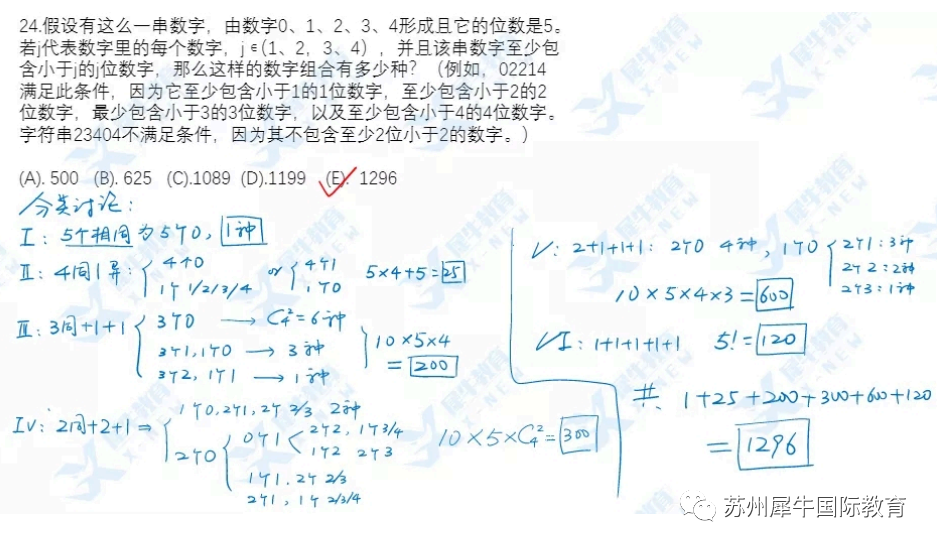 24.假设有这么一串数字，由数字0、1、2、3、4形成且它的位数是5。
若j代表数字里的每个数字，j∈(1、2，3、4），并且该串数字至少包
含小于j的j位数字，那么这样的数字组合有多少种？（例如，02214
满足此条件，因为它至少包含小于1的1位数字，至少包含小于2的2
位数字，最少包含小于3的3位数字，以及至少包含小于4的4位数字。
字符串23404不满足条件，因为其不包含至少2位小于2的数字。）
(A). 500 (B). 625 (C).1089 (D).1199 (E). 1296
分类讨论：
I：5个相同为5个0，1种
II：4同1异：{4个0 1个1/2/3/4 or {4个1 1个0 5×4+5=25
III：3同+1+1
3个0 → C₄²=6种
3个1,1个0 → 3种
3个2,1个1 → 1种
10×5×4
=200
IV：2同+2+1 ⇒
1个0,2个1,2个2/3 2种
2个0
0个1 2个2,1个3/4
1个2 2个3
1个1,2个2/3
2个1,1个2/3/4
10×5×C₄²=300
V：2+1+1+1：2个0 4种，1个0
2个1：3种
2个2：2种
2个3：1种
10×5×4×3=600
VI：1+1+1+1+1 5!=120
共 1+25+200+300+600+120
=1296
苏州犀牛国际教育
犀牛教育
X-NEW